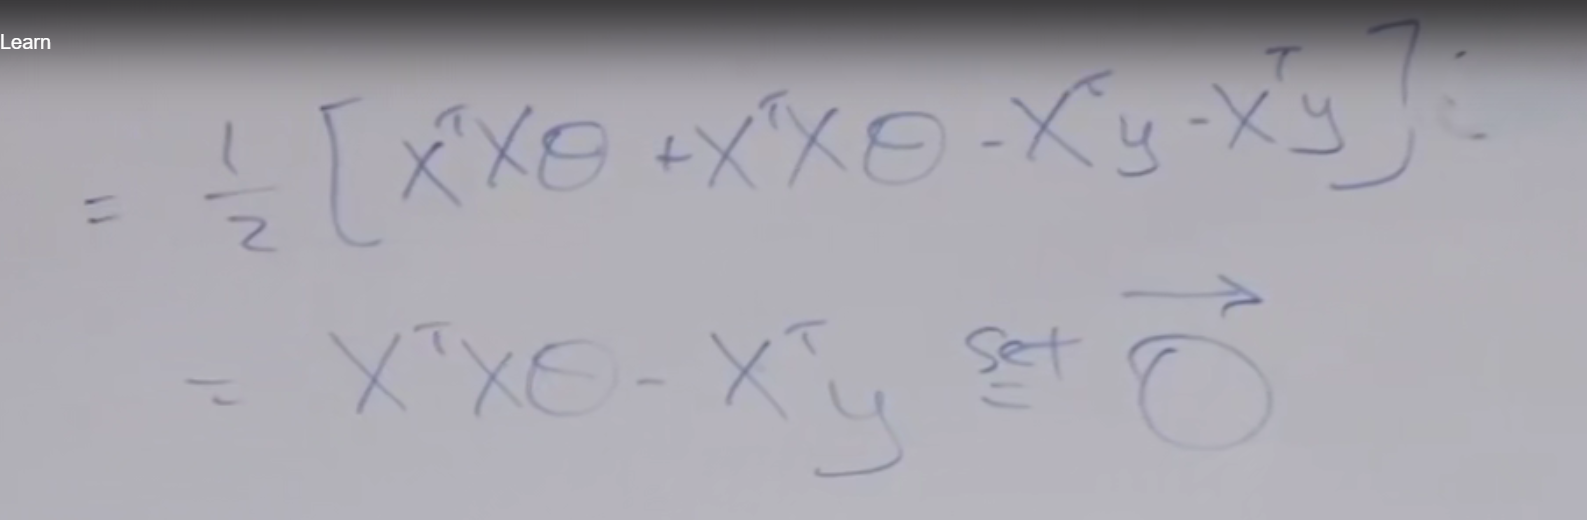 Learn
= 1/2 [XᵀXθ + XᵀXθ - Xᵀy - Xᵀy]
= XᵀXθ - Xᵀy set= 0⃗